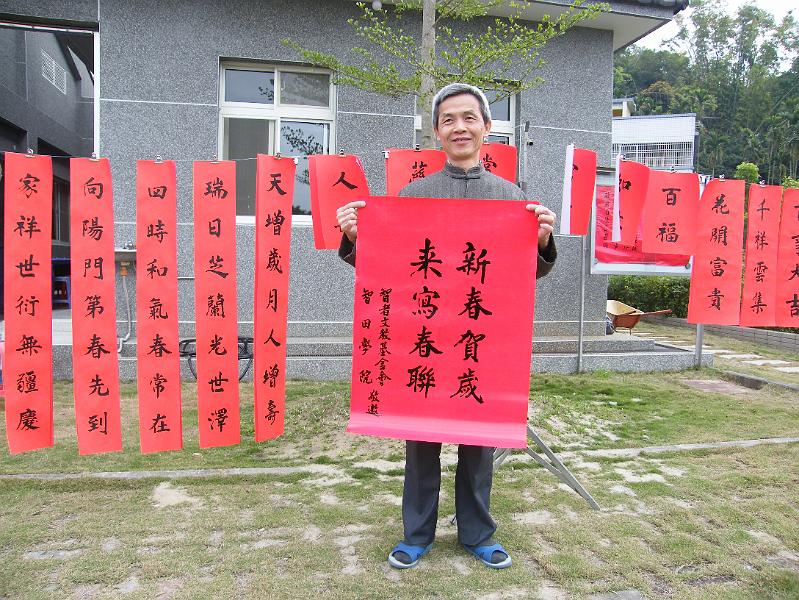 新春賀歲
来寫春聯
智者文教基金會
智田學院 敬邀
天增歲月人增壽
瑞日芝蘭光世澤
四時和氣春常在
向陽門第春先到
家祥世衍無疆慶
人
和
百福
花開富貴
千祥雲集
大吉